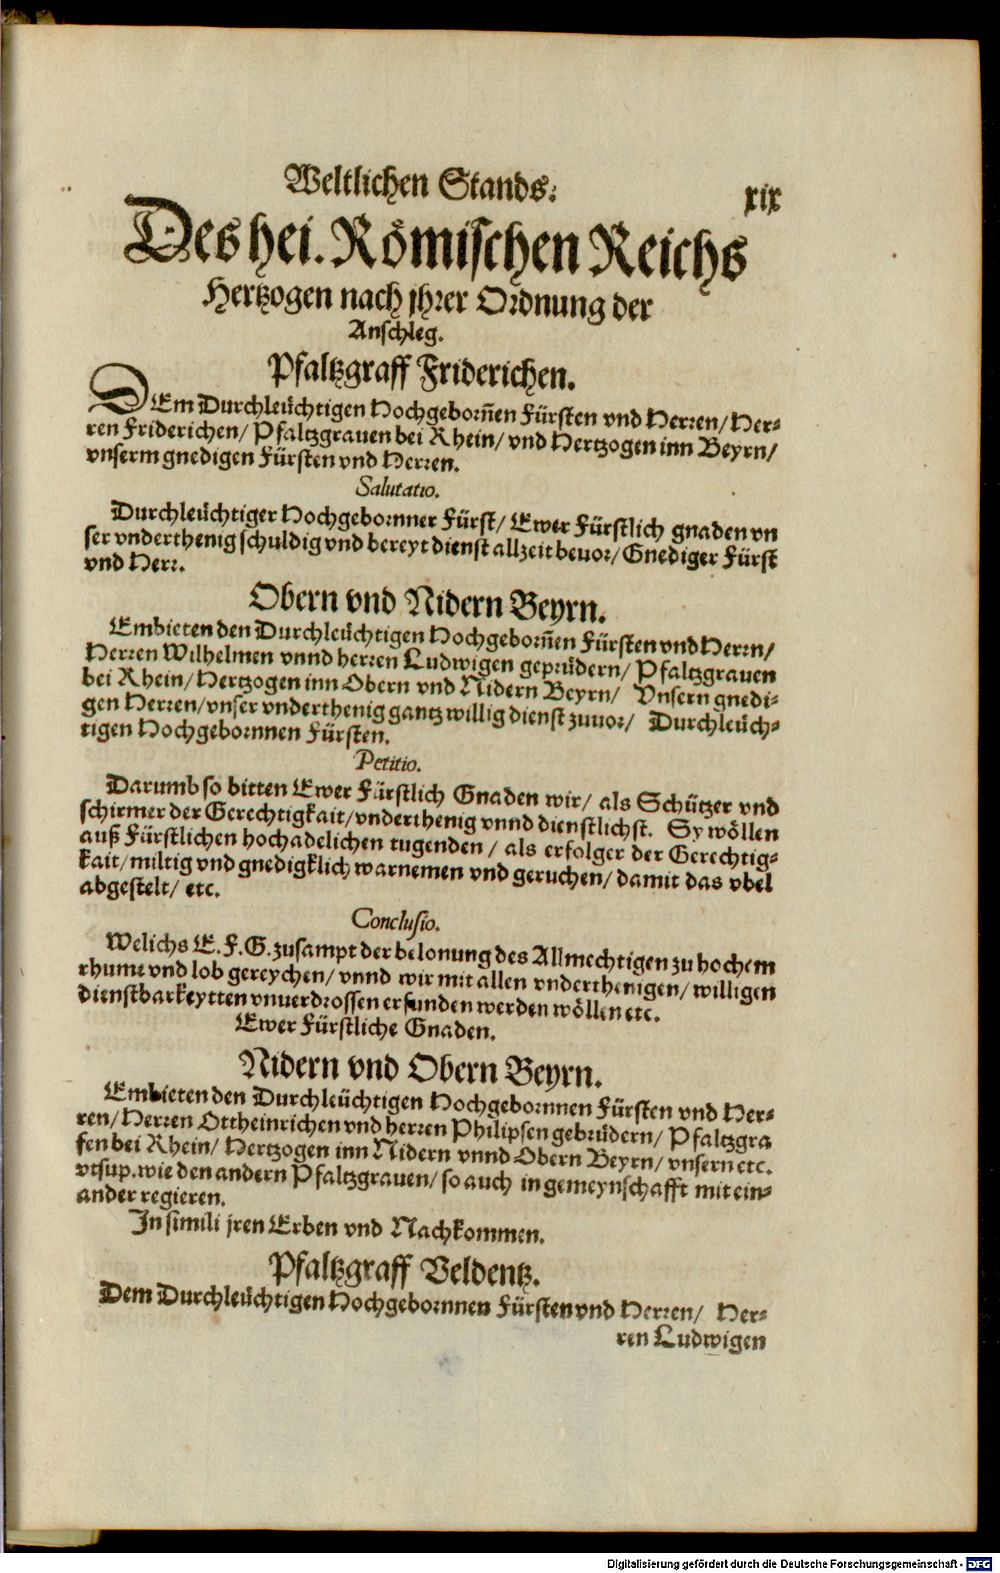 Weltlichen Stands:
xix
Des hei. Römischen Reichs
Hertzogen nach jhrer Ordnung der
Anschleg.
Pfaltzgraff Friderichen.
DEm Durchleüchtigen Hochgeborñen Fürsten vnd Herren/ Her=
ren Friderichen/ Pfaltzgrauen bei Rhein/ vnd Hertzogen inn Beyrn/
vnserm gnedigen Fürsten vnd Herren.
Salutatio.
Durchleüchtiger Hochgebornner Fürst/ Ewer Fürstlich gnaden vn
ser vnderthenig schuldig vnd bereyt dienst allzeit beuor/ Gnediger Fürst
vnd Herr.
Obern vnd Nidern Beyrn.
Embieten den Durchleüchtigen Hochgeborñen Fürsten vnd Herrn/
Herren Wilhelmen vnnd herren Ludwigen geprüdern/ Pfaltzgrauen
bei Rhein/ Hertzogen inn Obern vnd Nidern Beyrn/ Vnsern gnedi=
gen Herren/ vnser vnderthenig gantz willig dienst zuuor/ Durchleüch=
tigen Hochgebornnen Fürsten.
Petitio.
Darumb so bitten Ewer Fürstlich Gnaden wir/ als Schützer vnd
schirmer der Gerechtigkait/ vnderthenig vnnd dienstlichst. Sy wöllen
auß Fürstlichen hochadelichen tugenden/ als erfolger der Gerechtig=
kait/ miltig vnd gnedigklich warnemen vnd geruchen/ damit das vbel
abgestelt/ etc.
Conclusio.
Welichs E. F. G. zusampt der belonung des Allmechtigen zu hochem
rhume vnd lob gereychen/ vnnd wir mit allen vnderthenigen/ willigen
dienstbarkeytten vnuerdrossen erfunden werden wöllen etc.
Ewer Fürstliche Gnaden.
Nidern vnd Obern Beyrn.
Embieten den Durchleüchtigen Hochgebornnen Fürsten vnd Her=
ren/ Herren Ottheinrichen vnd herren Philipsen gebrüdern/ Pfaltzgra
fen bei Rhein/ Hertzogen inn Nidern vnnd Obern Beyrn/ vnsern etc.
vtsup. wie den andern Pfaltzgrauen/ so auch in gemeynschafft mit ein=
ander regieren.
In simili jren Erben vnd Nachkommen.
Pfaltzgraff Veldentz.
Dem Durchleüchtigen Hochgebornnen Fürsten vnd Herren/ Her=
ren Ludwigen
Digitalisierung gefördert durch die Deutsche Forschungsgemeinschaft - DFG